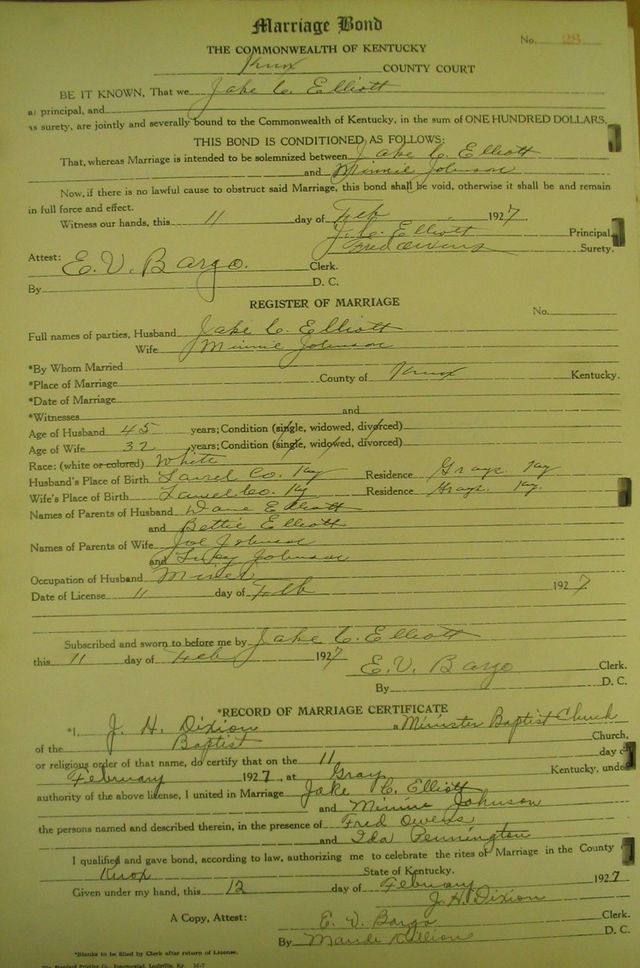 Marriage Bond
No. 28
THE COMMONWEALTH OF KENTUCKY
Knox COUNTY COURT
BE IT KNOWN, That we Jake C. Elliott
as principal, and
as surety, are jointly and severally bound to the Commonwealth of Kentucky, in the sum of ONE HUNDRED DOLLARS.
THIS BOND IS CONDITIONED AS FOLLOWS:
That, whereas Marriage is intended to be solemnized between Jake C. Elliott
and Minnie Johnson
Now, if there is no lawful cause to obstruct said Marriage, this bond shall be void, otherwise it shall be and remain
in full force and effect.
Witness our hands, this 11 day of Feb 1927
J. C. Elliott Principal
Fred Owens Surety.
Attest: E. V. Bargo. Clerk.
By D. C.
REGISTER OF MARRIAGE
No.
Full names of parties, Husband Jake C. Elliott
Wife Minnie Johnson
*By Whom Married
*Place of Marriage County of Knox Kentucky.
*Date of Marriage
*Witnesses and
Age of Husband 45 years; Condition (single, widowed, divorced)
Age of Wife 32 years; Condition (single, widowed, divorced)
Race: (white or colored) White
Husband's Place of Birth Laurel Co. Ky Residence Grays Ky
Wife's Place of Birth Laurel Co. Ky Residence Grays. Ky.
Names of Parents of Husband Elliott
and Bettie Elliott
Names of Parents of Wife Joe Johnson
and Johnson
Occupation of Husband Miner
Date of License 11 day of Feb 1927
Subscribed and sworn to before me by Jake C. Elliott
this 11 day of Feb 1927
E. V. Bargo Clerk.
By D. C.
*RECORD OF MARRIAGE CERTIFICATE
*I, J. H. Dixion a Minister Baptist Church
of the Baptist Church,
or religious order of that name, do certify that on the 11 day of
February 1927, at Gray Kentucky, under
authority of the above license, I united in Marriage Jake C. Elliott
and Minnie Johnson
the persons named and described therein, in the presence of Fred Owens
and Ida Pennington
I qualified and gave bond, according to law, authorizing me to celebrate the rites of Marriage in the County
Knox State of Kentucky.
Given under my hand, this 12 day of February 1927
J. H. Dixion
A Copy, Attest: E. V. Bargo Clerk.
By Maude D. C.
*Blanks to be filled by Clerk after return of License.